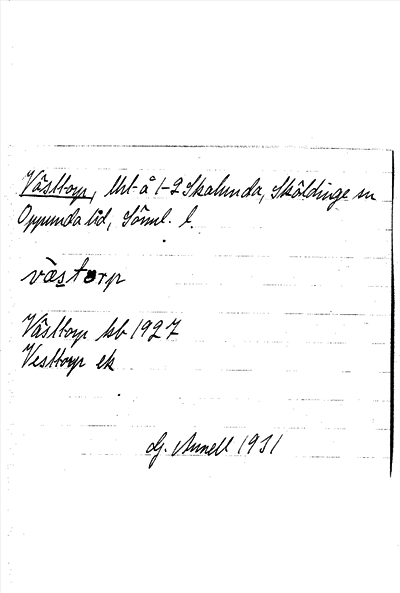 Västtorp, lht å 1-2 Skalunda, Sköldinge sn
Oppunda hd, Söml. l.
västorp
Västtorp kb 1927
Vesttorp ek
G. Annell 1931